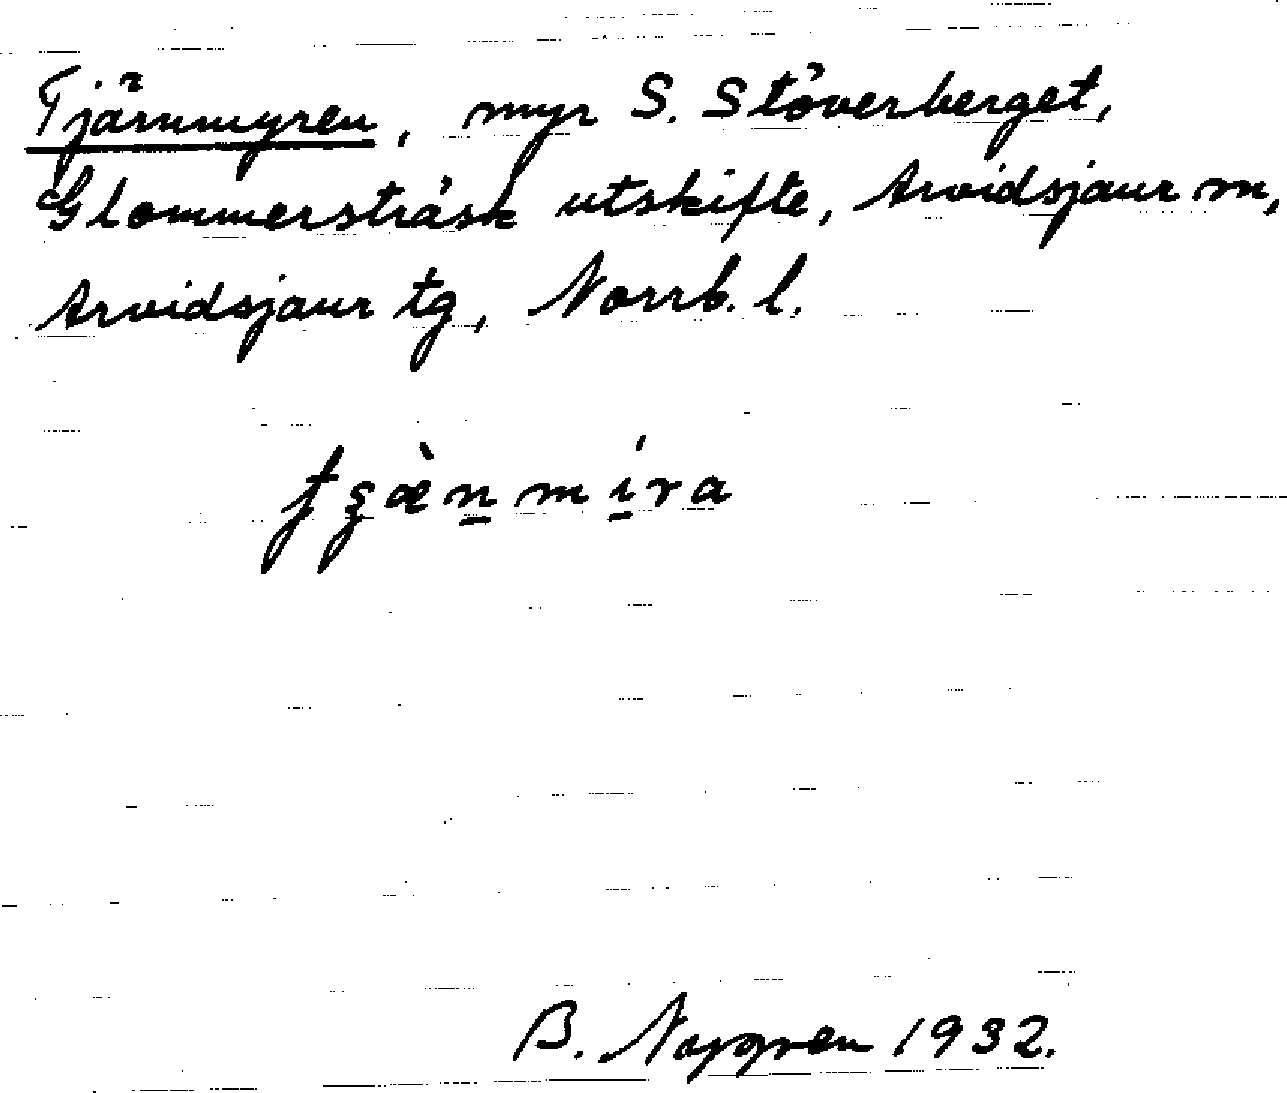 Tjärnmyren, myr S. Stöverberget,
Glommersträsk utskifte, Arvidsjaur sn,
Arvidsjaur tg, Norrb. l.
B. 1932.